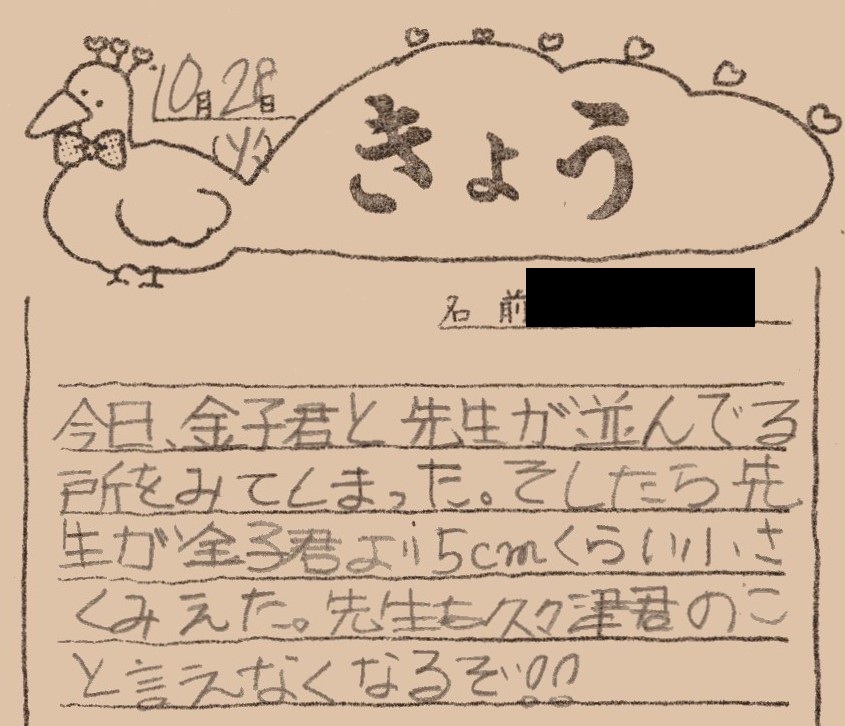 10月28日
(火)
きょう
名前
今日、金子君と先生が並んでる
所をみてしまった。そしたら先
生が金子君より5cmくらい小さ
くみえた。先生も久々津君のこ
と言えなくなるぞ!!